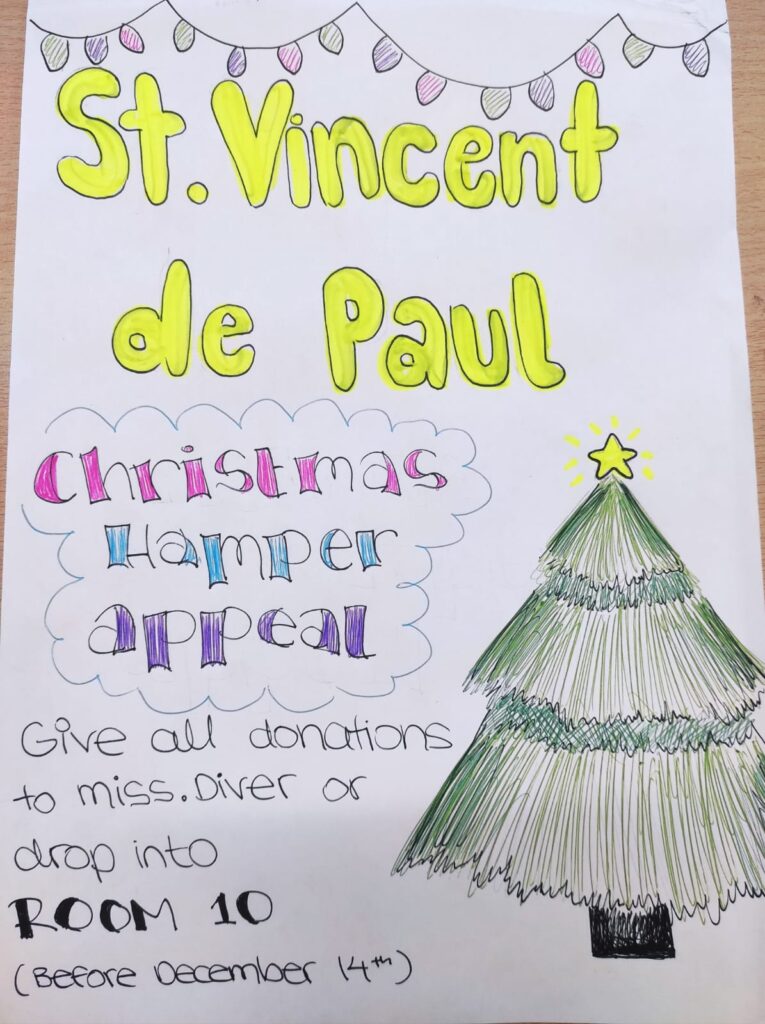 St. Vincent
de Paul
Christmas
Hamper
appeal
Give all donations
to miss. Diver or
drop into
ROOM 10
(Before December 14th)